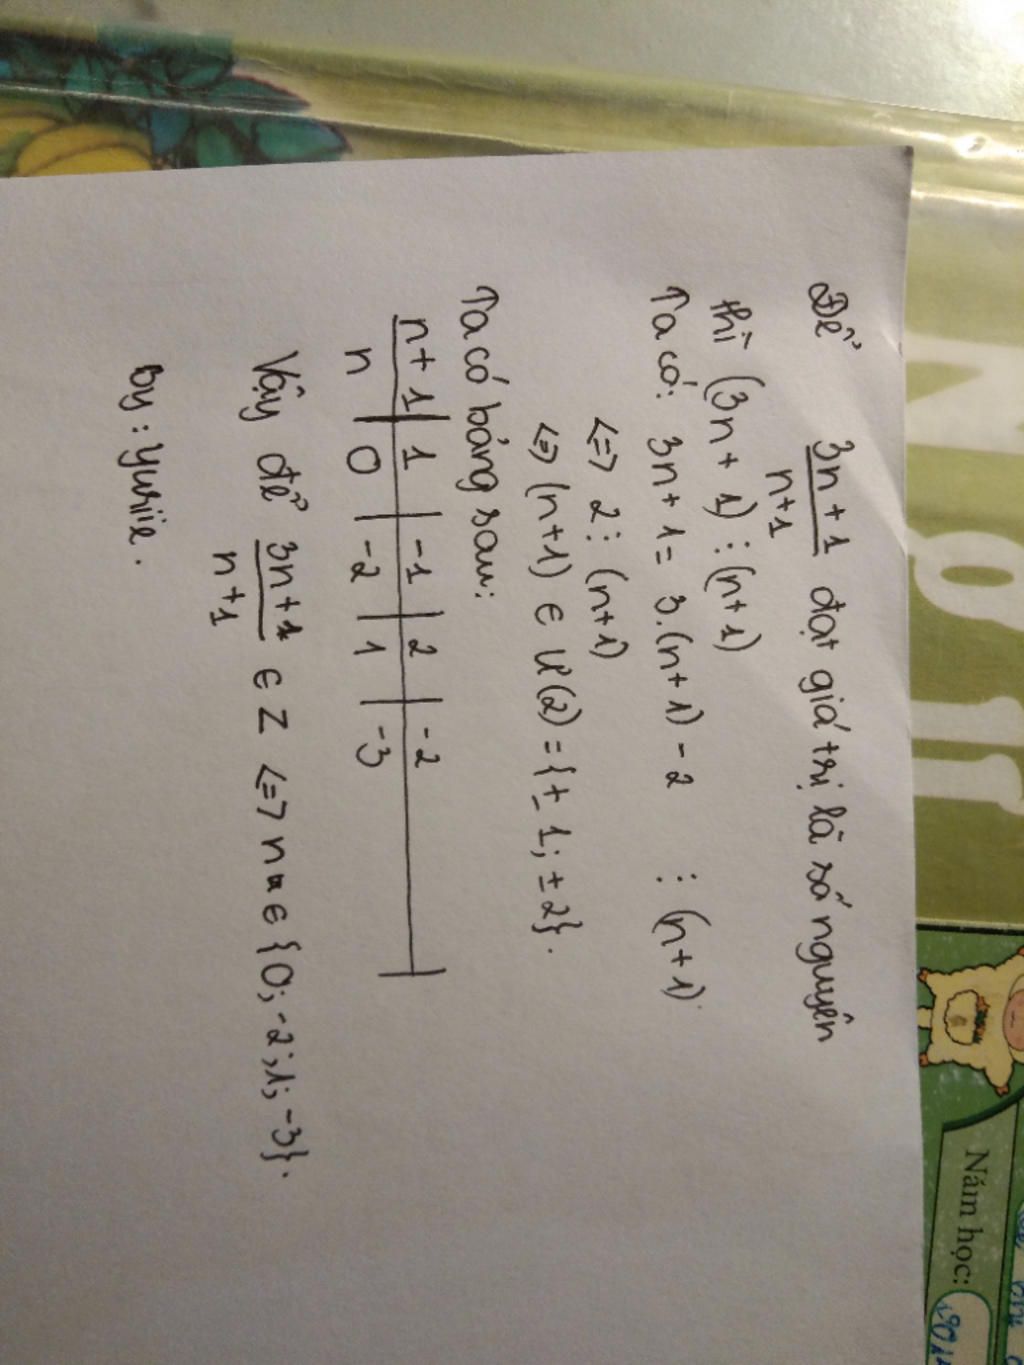 Để 3n+1/n+1 đạt giá trị là số nguyên
thì (3n+1) ⋮ (n+1)
Ta có: 3n+1 = 3.(n+1) - 2 ⋮ (n+1)
<=> 2 ⋮ (n+1)
<=> (n+1) ∈ Ư(2) = {± 1; ±2}.
Ta có bảng sau:
n+1 | 1 | -1 | 2 | -2
n | 0 | -2 | 1 | -3
Vậy để 3n+1/n+1 ∈ Z <=> n ∈ {0; -2; 1; -3}.
By: Yuriie.
Năm học: